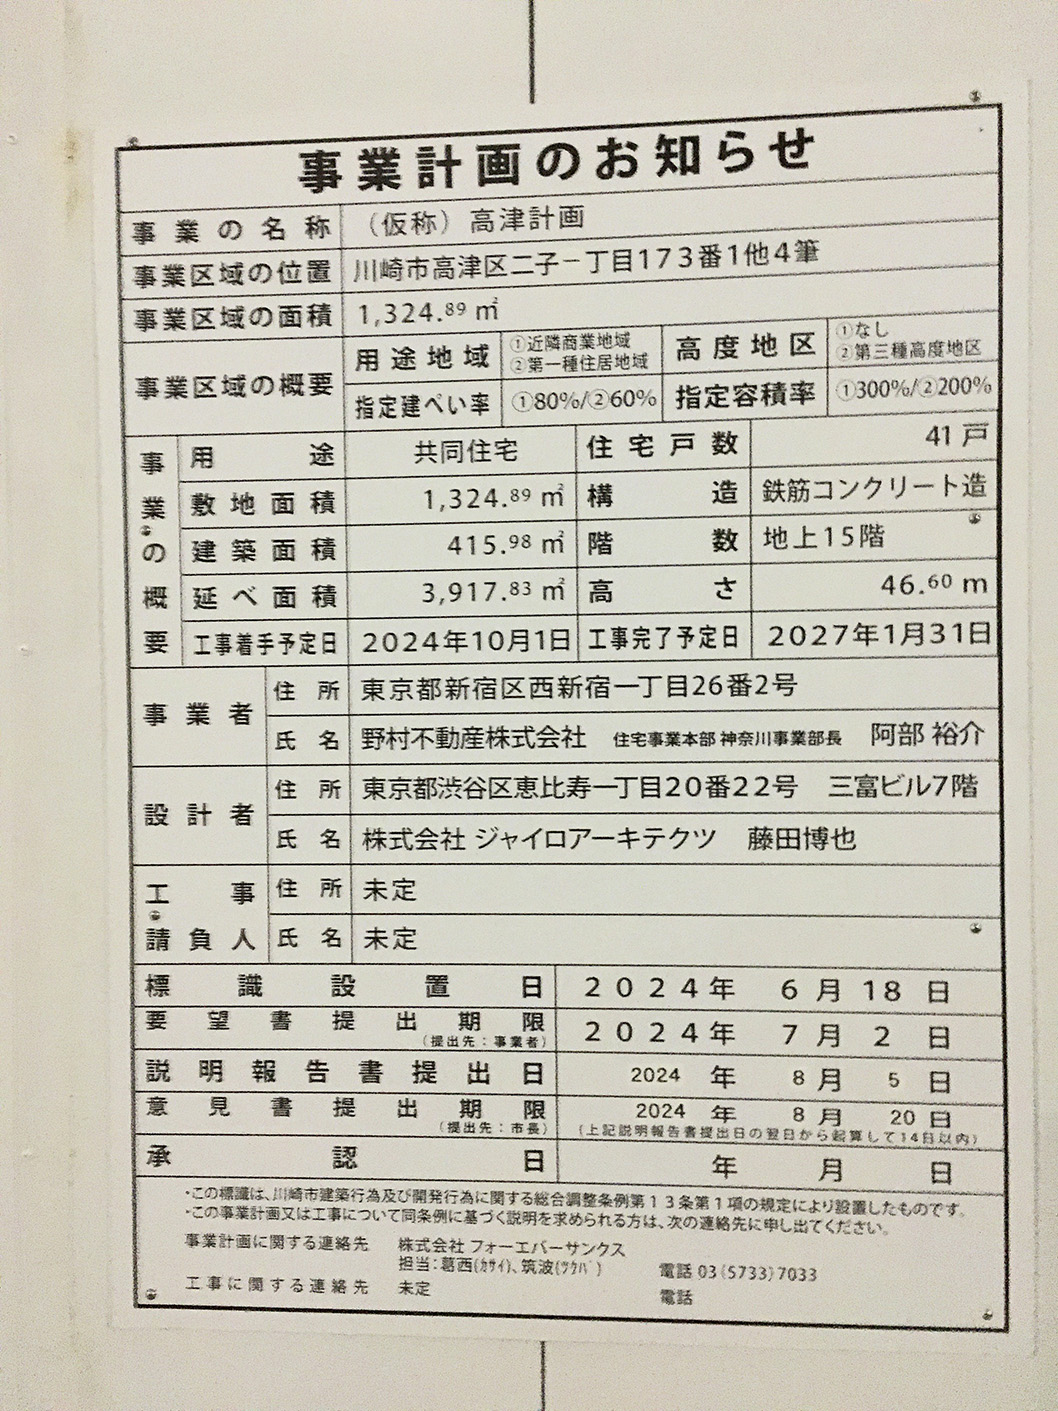 事業計画のお知らせ
事業の名称 （仮称）高津計画
事業区域の位置 川崎市高津区二子一丁目173番1他4筆
事業区域の面積 1,324.89㎡
事業区域の概要 用途地域 ①近隣商業地域 ②第一種住居地域 高度地区 ①なし ②第三種高度地区
指定建ぺい率 ①80%/②60% 指定容積率 ①300%/②200%
事業の概要 用途 共同住宅 住宅戸数 41戸
敷地面積 1,324.89㎡ 構造 鉄筋コンクリート造
建築面積 415.98㎡ 階数 地上15階
延べ面積 3,917.83㎡ 高さ 46.60m
工事着手予定日 2024年10月1日 工事完了予定日 2027年1月31日
事業者 住所 東京都新宿区西新宿一丁目26番2号
氏名 野村不動産株式会社 住宅事業本部 神奈川事業部長 阿部 裕介
設計者 住所 東京都渋谷区恵比寿一丁目20番22号 三富ビル7階
氏名 株式会社 ジャイロアーキテクツ 藤田博也
工事請負人 住所 未定
氏名 未定
標識設置日 2024年 6月18日
要望書提出期限（提出先：事業者） 2024年 7月 2日
説明報告書提出日 2024年 8月 5日
意見書提出期限（提出先：市長） 2024年 8月 20日
（上記説明報告書提出日の翌日から起算して14日以内）
承認日 年 月 日
・この標識は、川崎市建築行為及び開発行為に関する総合調整条例第13条第1項の規定により設置したものです。
・この事業計画又は工事について同条例に基づく説明を求められる方は、次の連絡先に申し出てください。
事業計画に関する連絡先 株式会社 フォーエバーサンクス
担当：葛西(ｶｻｲ)、筑波(ﾂｸﾊﾞ) 電話 03(5733)7033
工事に関する連絡先 未定 電話